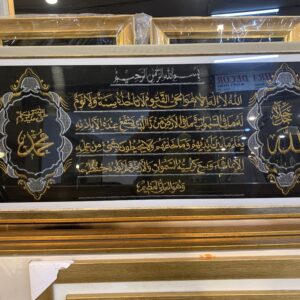 بسم الله الرحمن الرحيم
الله لا إله إلا هو الحي القيوم لا تأخذه سنة ولا نوم
له ما في السموات وما في الأرض من ذا الذي يشفع عنده إلا بإذنه
يعلم ما بين أيديهم وما خلفهم ولا يحيطون بشيء من علمه
إلا بما شاء وسع كرسيه السموات والأرض ولا يؤده حفظهما
وهو العلي العظيم
الله
جل جلاله
محمد
DECOR